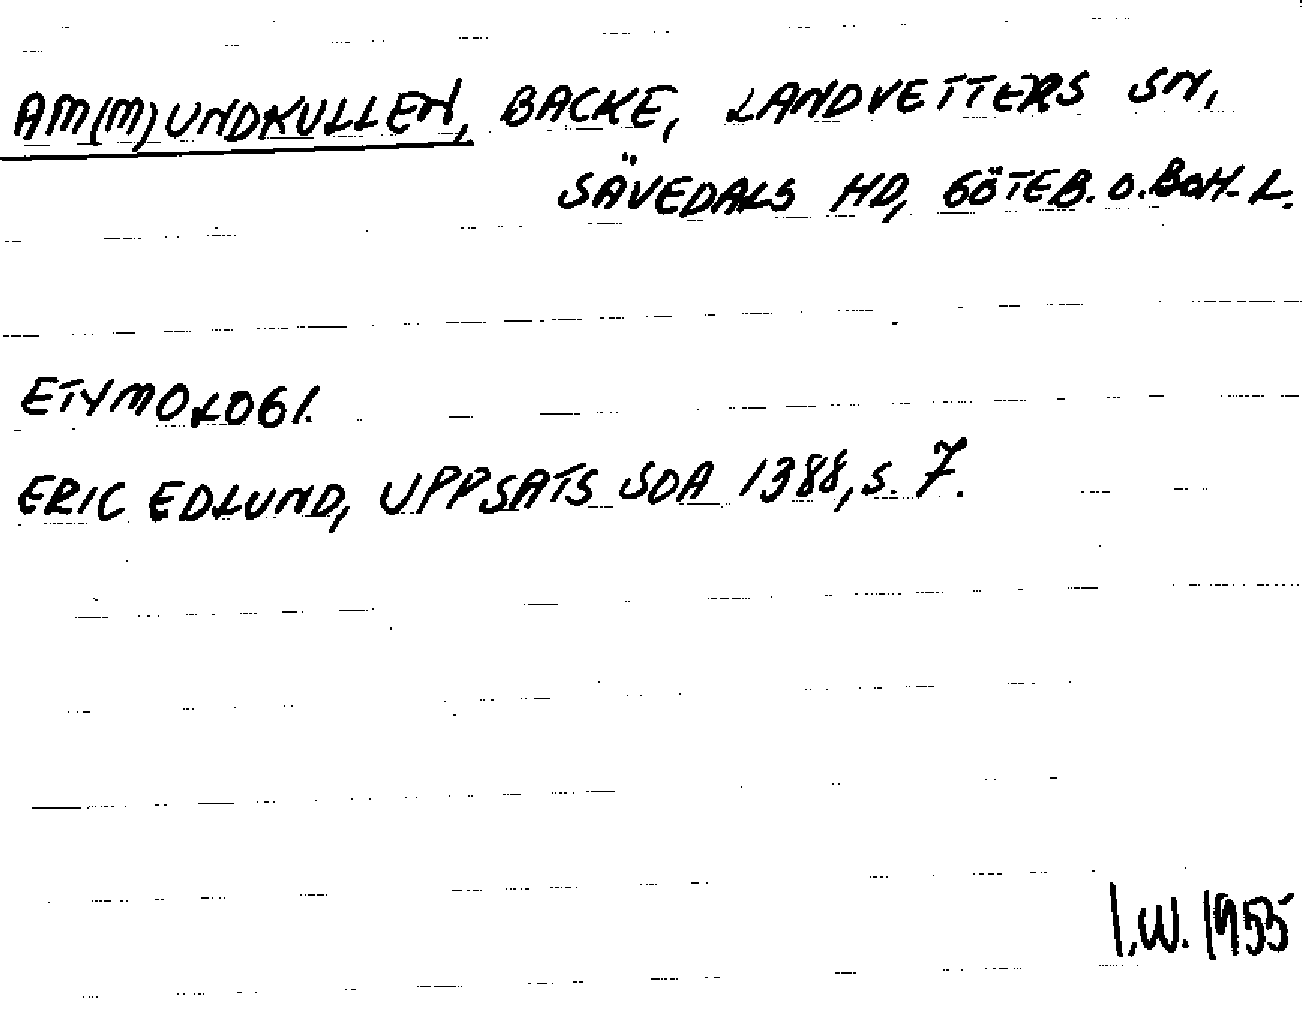 AM(M)UNDKULLEN, BACKE, LANDVETTERS SN,
SÄVEDALS HD, GÖTEB. O. BOH. L.
ETYMOLOGI.
ERIC EDLUND, UPPSATS SOA 1388, S. 7.
I.W. 1955